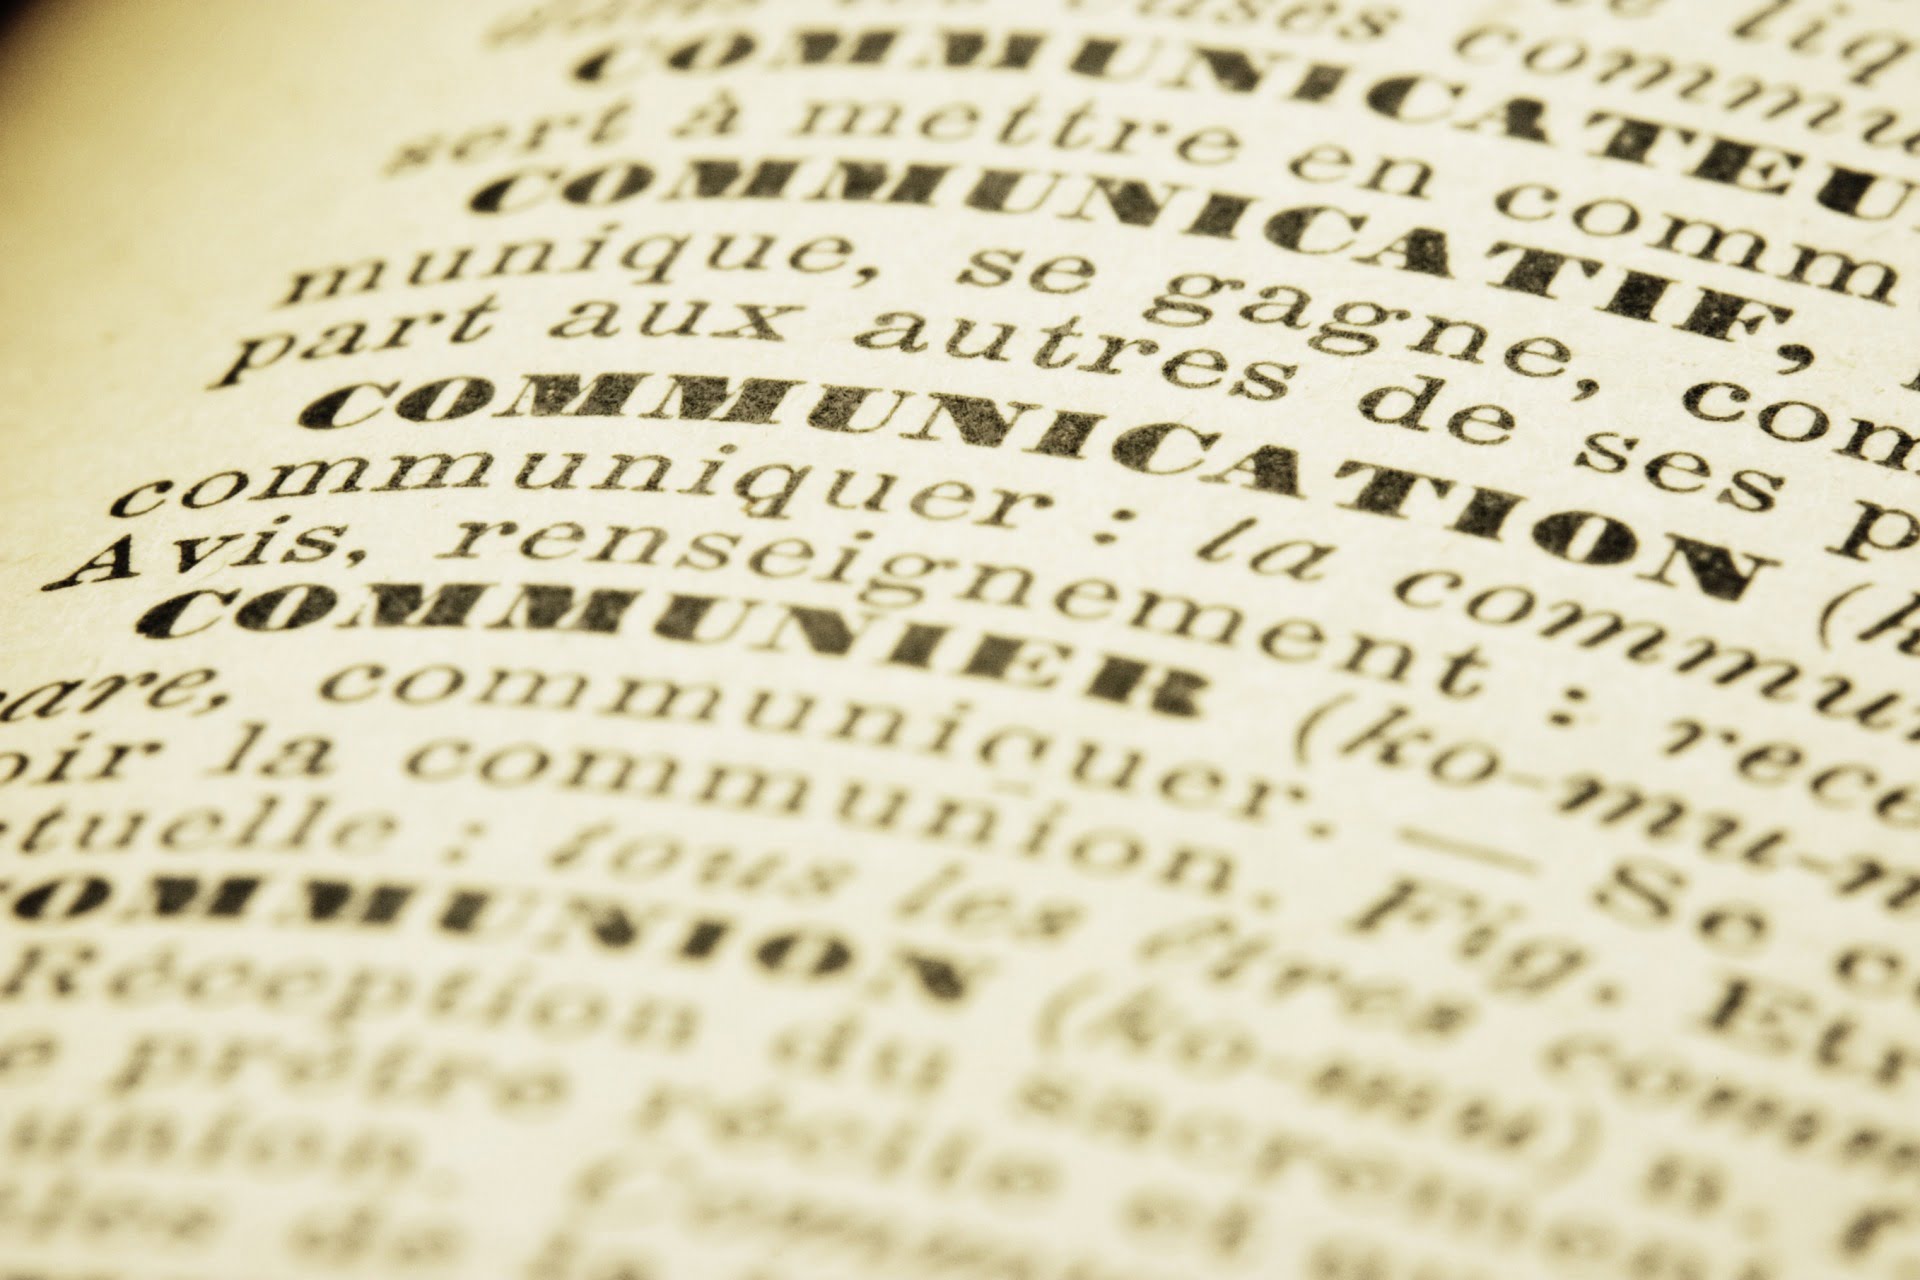 commu
liq
COMMUNICATEU
sert à mettre en comm
COMMUNICATIF,
munique, se gagne, com
part aux autres de ses p
COMMUNICATION (k
communiquer : la commun
Avis, renseignement : rece
COMMUNIER (ko-mu-n
are, communiquer. — Se c
oir la communion. Fig. Etr
tuelle : tous les êtres comm
OMMUNION (ko-mu) n.
Réception du sacremen
e prêtre récite et
union.